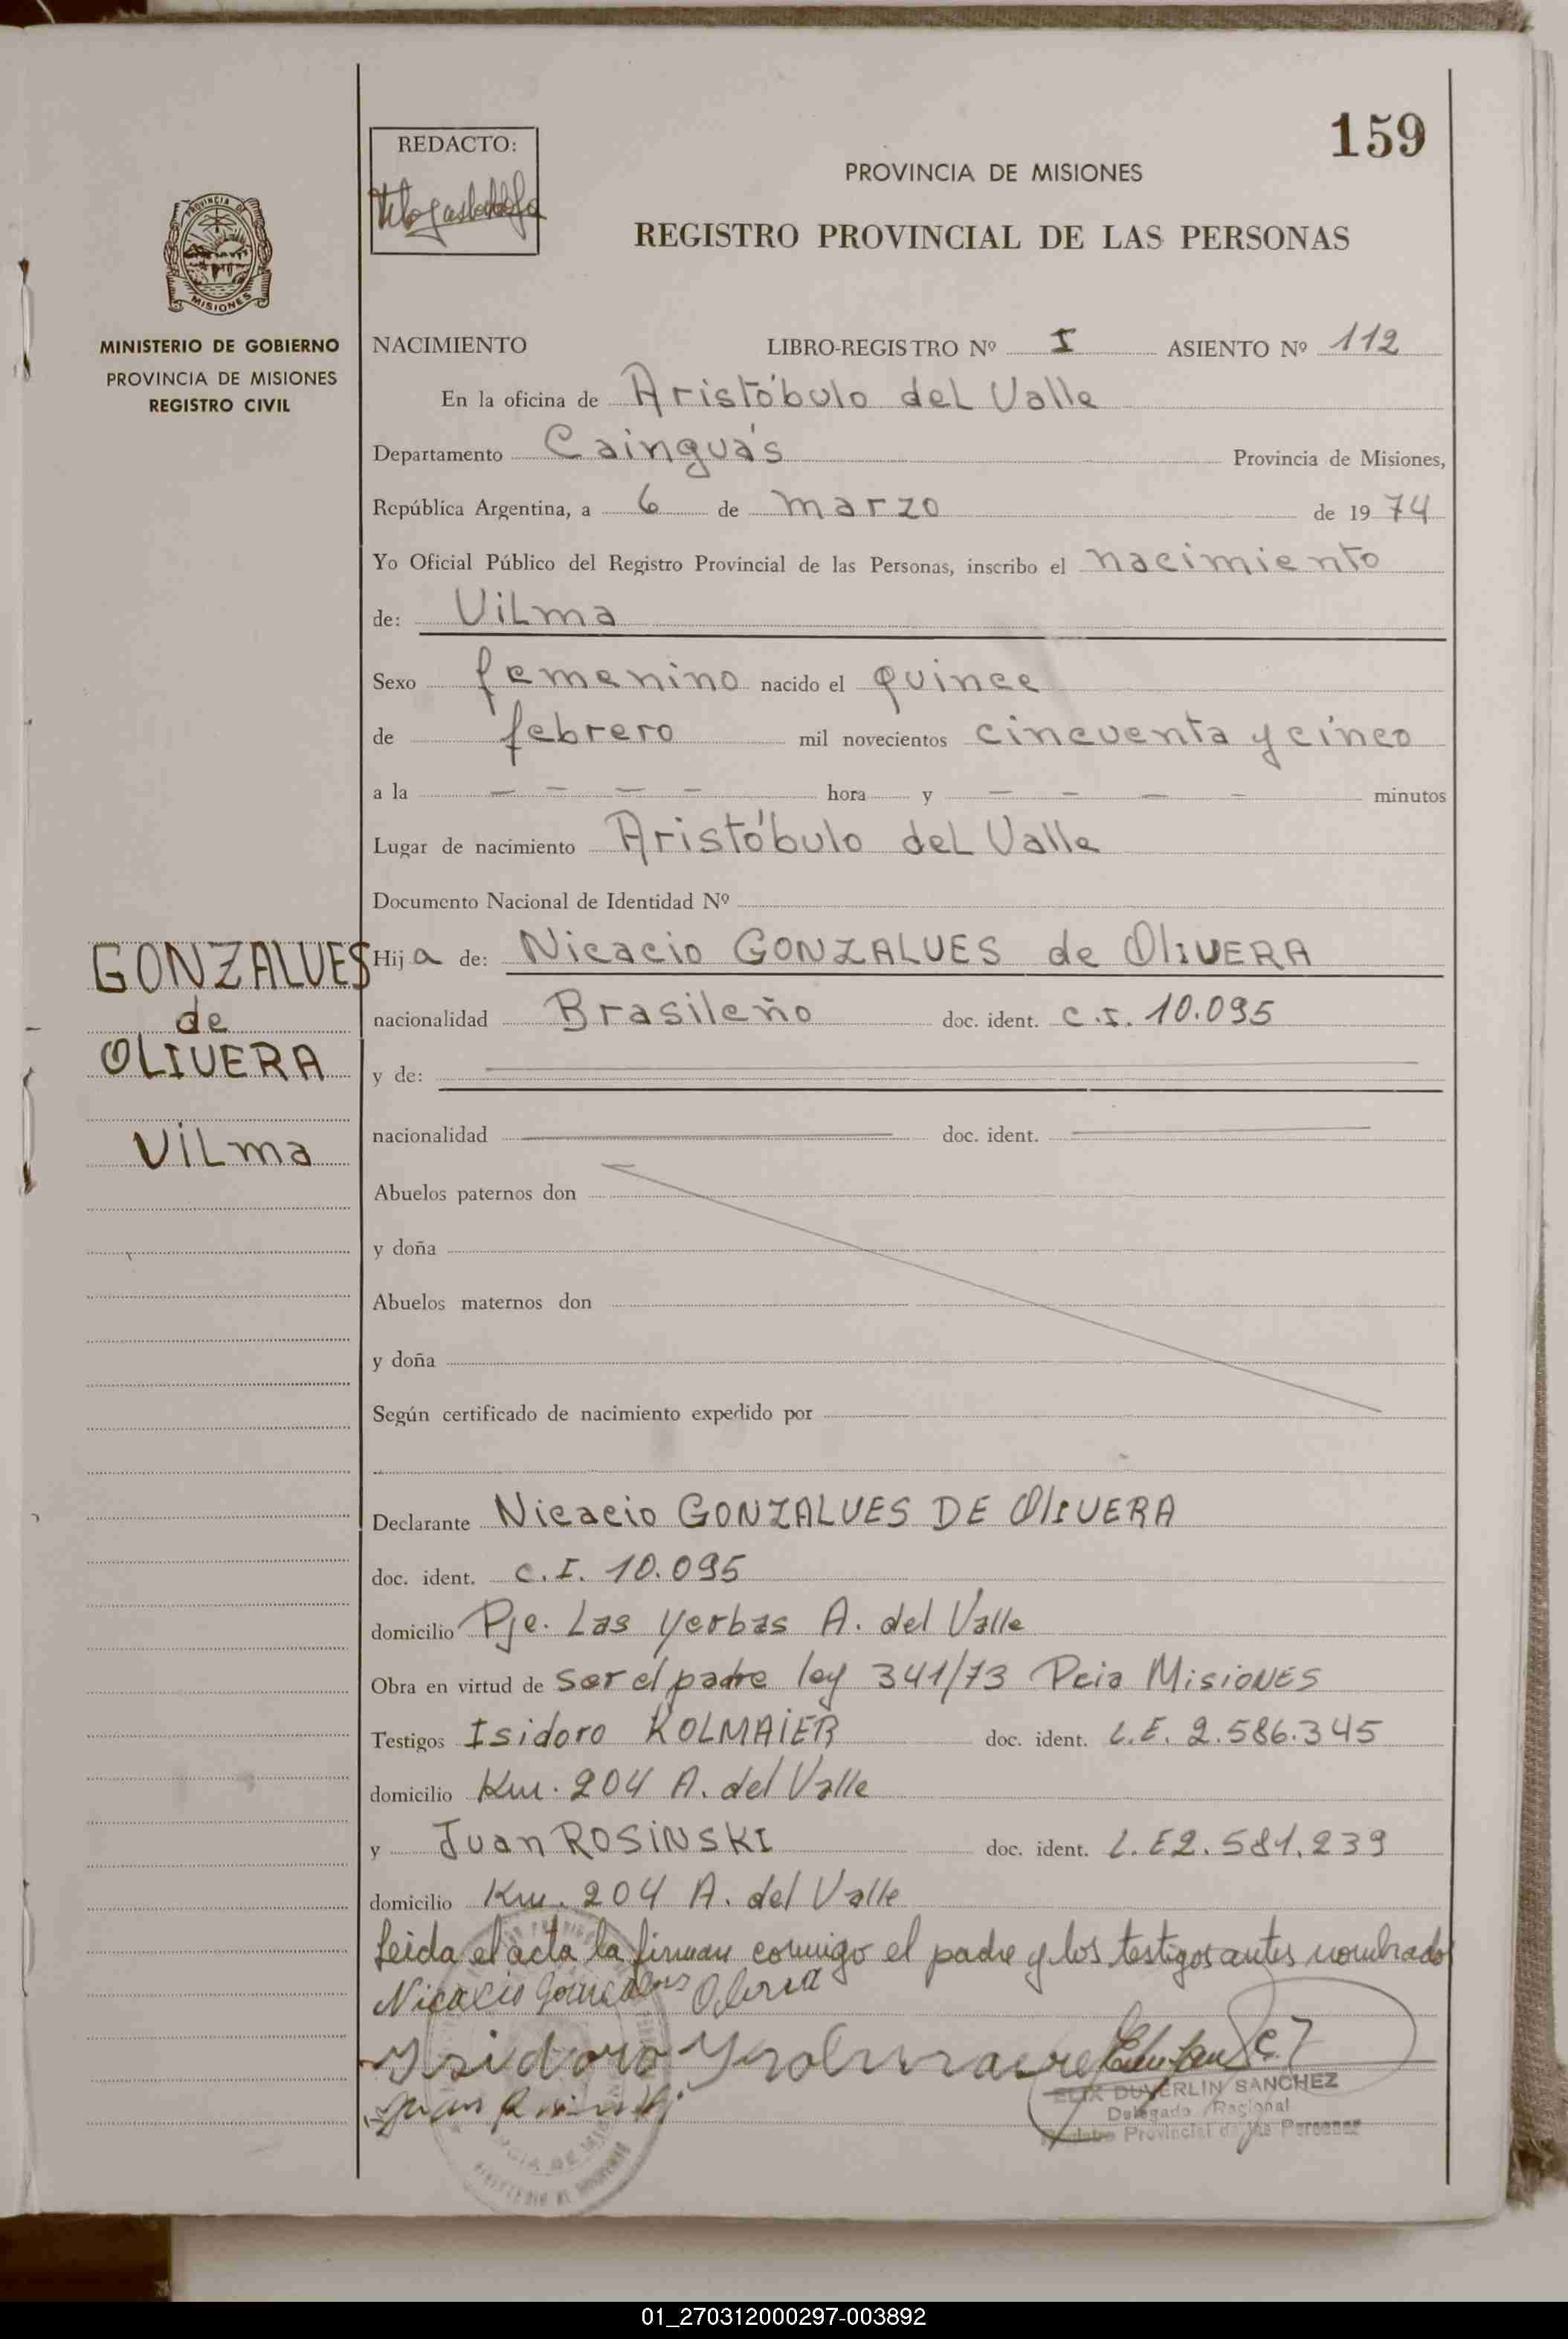 159
REDACTO:
PROVINCIA DE MISIONES
REGISTRO PROVINCIAL DE LAS PERSONAS
PROVINCIA DE
MISIONES
MINISTERIO DE GOBIERNO
PROVINCIA DE MISIONES
REGISTRO CIVIL
NACIMIENTO LIBRO-REGISTRO Nº I ASIENTO Nº 112
En la oficina de Aristóbulo del Valle
Departamento Cainguás Provincia de Misiones,
República Argentina, a 6 de marzo de 1974
Yo Oficial Público del Registro Provincial de las Personas, inscribo el nacimiento
de: Vilma
Sexo femenino nacido el quince
de febrero mil novecientos cincuenta y cinco
a la — — — — hora y — — — — minutos
Lugar de nacimiento Aristóbulo del Valle
Documento Nacional de Identidad Nº
GONZALVES
de
OLIVERA
Vilma
Hija de: Nicacio GONZALVES de OLIVERA
nacionalidad Brasileño doc. ident. C.I. 10.095
y de:
nacionalidad doc. ident.
Abuelos paternos don
y doña
Abuelos maternos don
y doña
Según certificado de nacimiento expedido por
Declarante Nicacio GONZALVES DE OLIVERA
doc. ident. C.I. 10.095
domicilio Pje. Las Yerbas A. del Valle
Obra en virtud de ser el padre ley 341/73 Pcia MISIONES
Testigos Isidoro KOLMAIER doc. ident. L.E. 2.586.345
domicilio Km. 204 A. del Valle
y Juan ROSINSKI doc. ident. L.E 2.581.239
domicilio Km. 204 A. del Valle
Leida el acta la firman conmigo el padre y los testigos antes nombrados
Nicacio
Isidoro
Juan
ELIX DUVERLIN SANCHEZ
Delegado Regional
Registro Provincial de las Personas
01_270312000297-003892